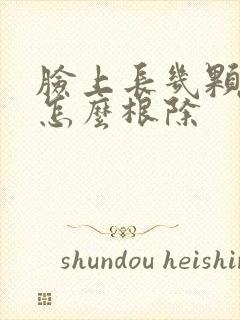 臉上長幾顆
怎麼根除
shundou heishin